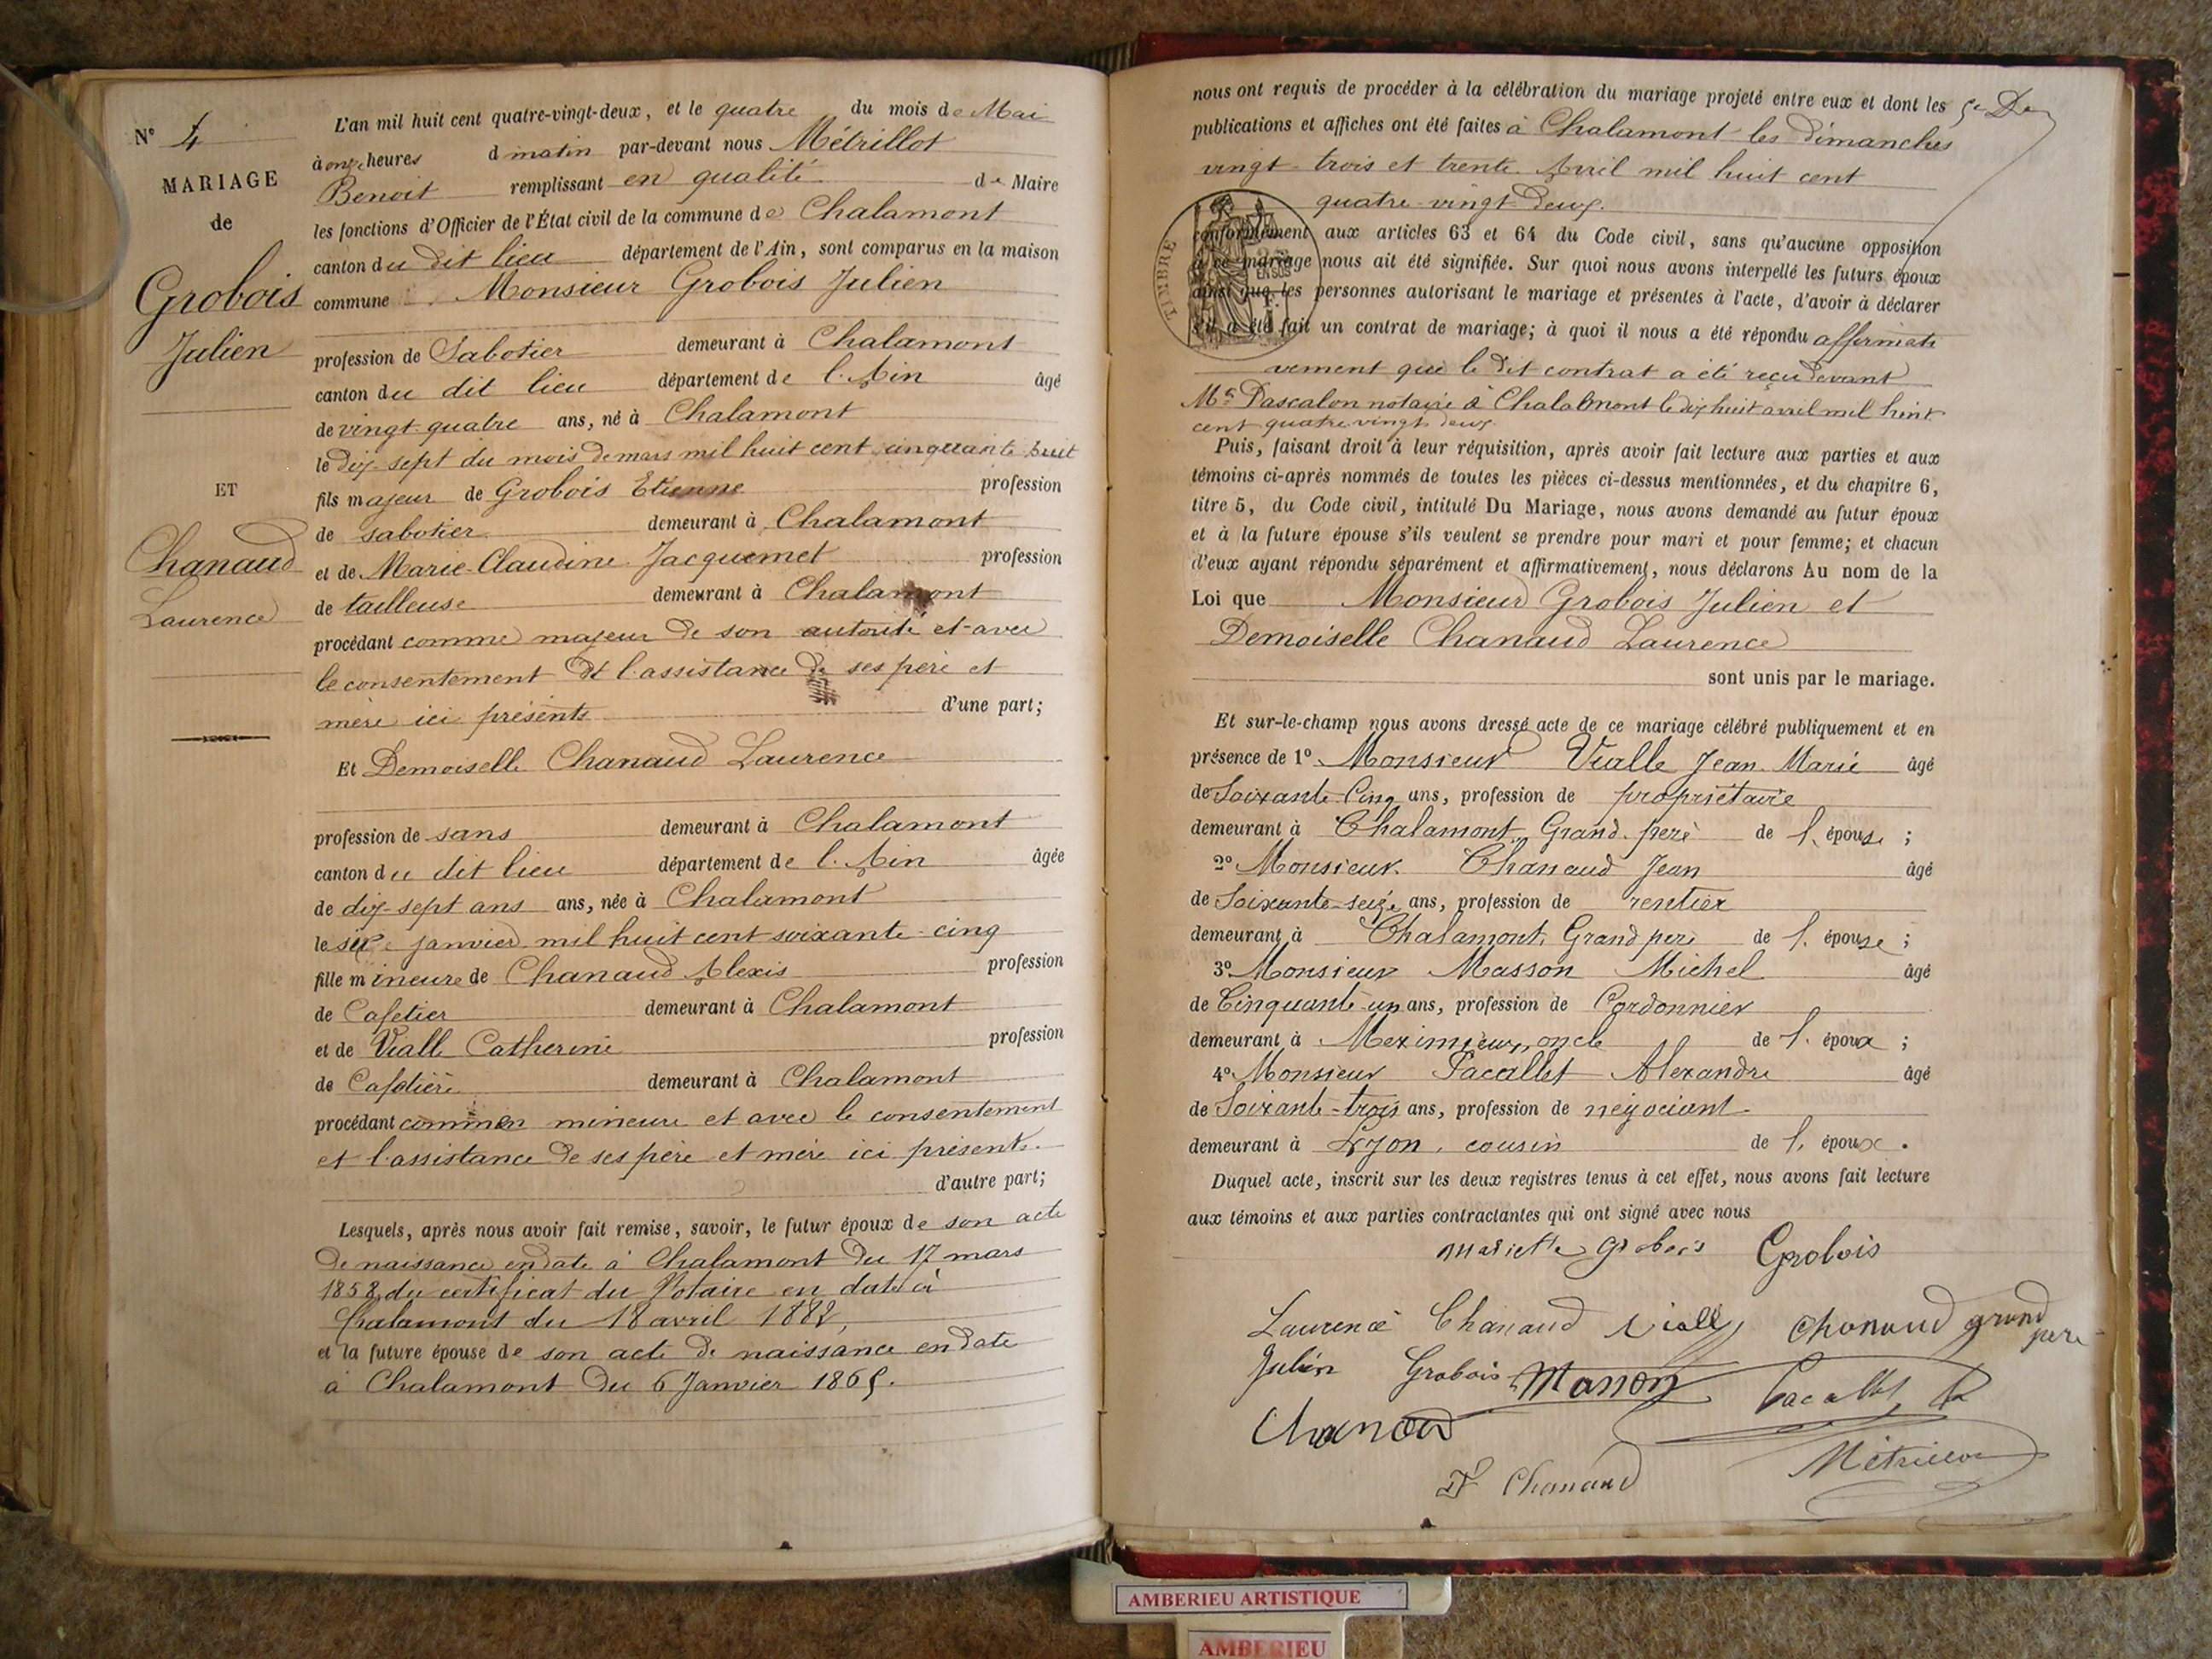 N° 4
MARIAGE
de
Grobois
Julien
ET
Chanaud
Laurence
L'an mil huit cent quatre-vingt-deux, et le quatre du mois de Mai
à onze heures d matin par-devant nous Métrillot
Benoit remplissant en qualité de Maire
les fonctions d'Officier de l'État civil de la commune de Chalamont
canton du dit lieu département de l'Ain, sont comparus en la maison
commune Monsieur Grobois Julien
profession de Sabotier demeurant à Chalamont
canton du dit lieu département de l'Ain âgé
de vingt-quatre ans, né à Chalamont
le dix-sept du mois de mars mil huit cent cinquante huit
fils majeur de Grobois Etienne profession
de sabotier demeurant à Chalamont
et de Marie-Claudine Jacquemet profession
de tailleuse demeurant à Chalamont
procédant comme majeur de son autorité et avec
le consentement et l'assistance de ses père et
mère ici présents d'une part;
Et Demoiselle Chanaud Laurence
profession de sans demeurant à Chalamont
canton du dit lieu département de l'Ain âgée
de dix-sept ans ans, née à Chalamont
le six janvier mil huit cent soixante-cinq
fille mineure de Chanaud Alexis profession
de Cafetier demeurant à Chalamont
et de Vialle Catherine profession
de Cafetière demeurant à Chalamont
procédant comme mineure et avec le consentement
et l'assistance de ses père et mère ici présents.
d'autre part;
Lesquels, après nous avoir fait remise, savoir, le futur époux de son acte
de naissance en date à Chalamont du 17 mars
1858 du certificat du Notaire en date à
Chalamont du 18 avril 1882,
et la future épouse de son acte de naissance en date
à Chalamont du 6 Janvier 1865.
nous ont requis de procéder à la célébration du mariage projeté entre eux et dont les
publications et affiches ont été faites à Chalamont les dimanches
vingt-trois et trente Avril mil huit cent
quatre-vingt-deux.
TIMBRE
conformément aux articles 63 et 64 du Code civil, sans qu'aucune opposition
à ce mariage nous ait été signifiée. Sur quoi nous avons interpellé les futurs époux
ainsi que les personnes autorisant le mariage et présentes à l'acte, d'avoir à déclarer
s'il a été fait un contrat de mariage; à quoi il nous a été répondu affirmati
vement que le dit contrat a été reçu devant
Me Pascalon notaire à Chalamont le dix huit avril mil huit
cent quatre vingt deux
Puis, faisant droit à leur réquisition, après avoir fait lecture aux parties et aux
témoins ci-après nommés de toutes les pièces ci-dessus mentionnées, et du chapitre 6,
titre 5, du Code civil, intitulé Du Mariage, nous avons demandé au futur époux
et à la future épouse s'ils veulent se prendre pour mari et pour femme; et chacun
d'eux ayant répondu séparément et affirmativement, nous déclarons Au nom de la
Loi que Monsieur Grobois Julien et
Demoiselle Chanaud Laurence
sont unis par le mariage.
Et sur-le-champ nous avons dressé acte de ce mariage célébré publiquement et en
présence de 1° Monsieur Vialle Jean-Marie âgé
de Soixante-Cinq ans, profession de propriétaire
demeurant à Chalamont, Grand-père de l'épouse ;
2° Monsieur Chanaud Jean âgé
de Soixante-seize ans, profession de rentier
demeurant à Chalamont, Grand père de l'épouse ;
3° Monsieur Masson Michel âgé
de Cinquante-un ans, profession de Cordonnier
demeurant à Meximieux, oncle de l'époux ;
4° Monsieur Pacallet Alexandre âgé
de Soixante-trois ans, profession de négociant
demeurant à Lyon, cousin de l'époux .
Duquel acte, inscrit sur les deux registres tenus à cet effet, nous avons fait lecture
aux témoins et aux parties contractantes qui ont signé avec nous
Mariette Grobois Grobois
Laurence Chanaud Vialle Chanaud grand
père
Julien Grobois Masson Pacallet
Chanaud
Chanaud Métrillot
AMBERIEU ARTISTIQUE
AMBERIEU